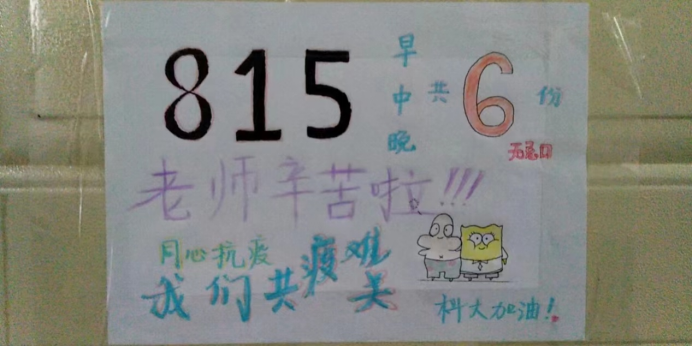 815 早中晚 共 6 份
无忌口
老师辛苦啦!!!
同心抗疫
我们共疫难关
科大加油!